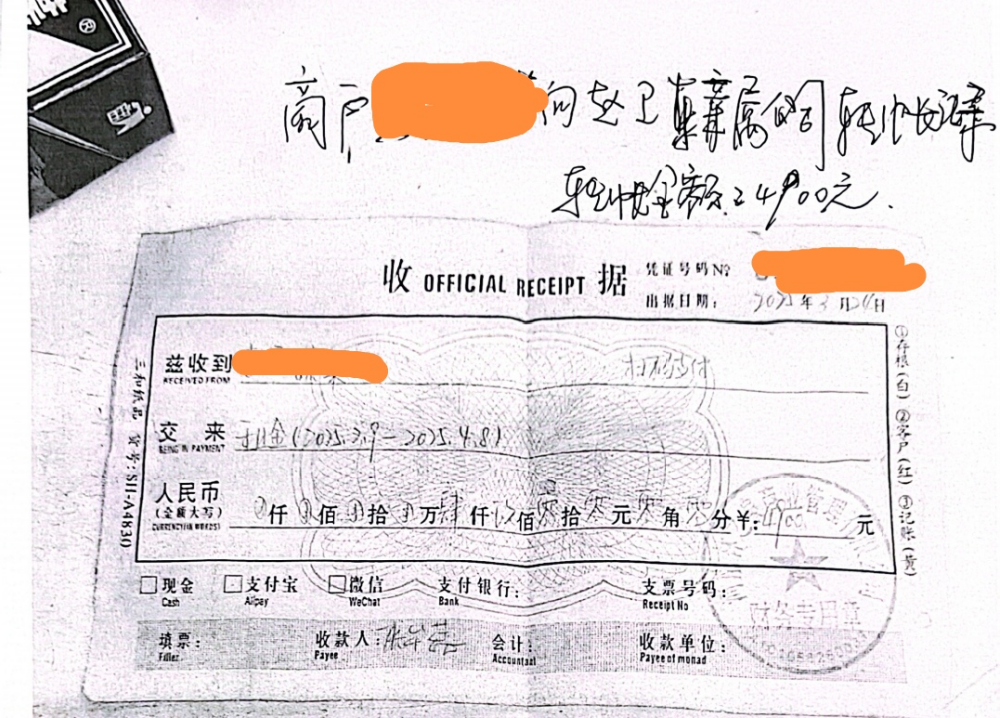 商户
向赵卫
属的
转帐记录
转帐金额:24900元.
收 OFFICIAL RECEIPT 据
凭证号码 №
出据日期: 2025年3月24日
兹收到
RECEIVED FROM
扫码支付
交 来 租金(2025.3.9-2025.4.8)
BEING IN PAYMENT
人民币
(金额大写)
CURRENCY(IN WORDS)
仟 佰 拾 万肆仟玖佰零拾零元零角零分¥:4900元
□现金 □支付宝 □微信 支付银行: 支票号码:
Cash Alipay WeChat Bank Receipt No
填票: 收款人: 会计: 收款单位:
Filler Payee Accountant Payee of monad
财务专用章
①存根(白) ②客户(红) ③记账(黄)